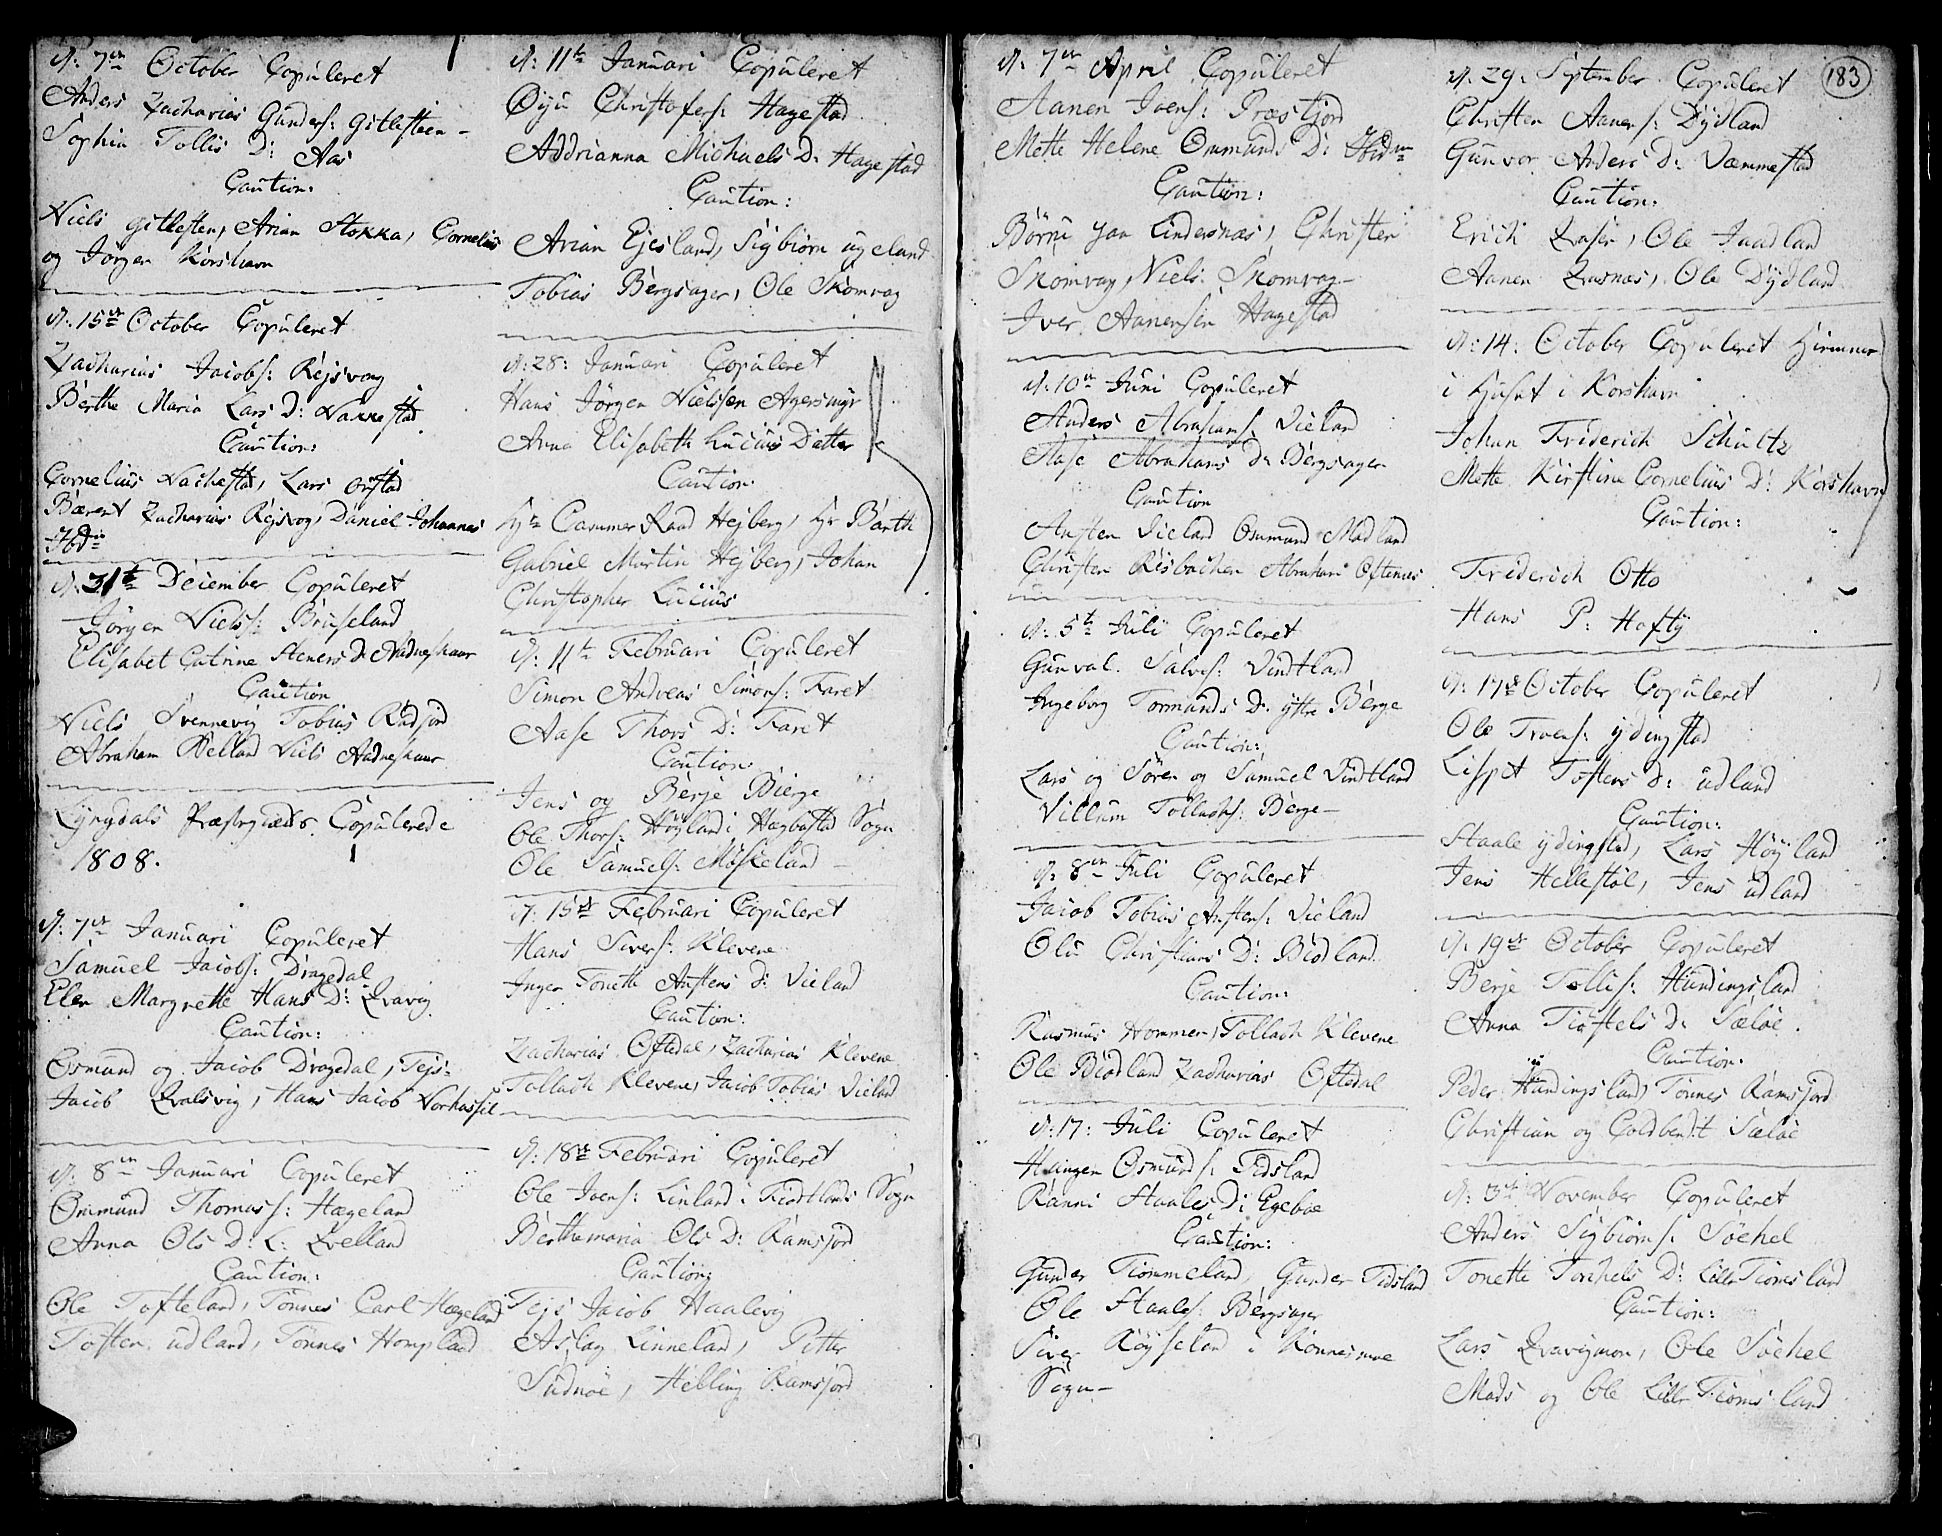 d: 7de October Copuleret
Anders Zacharias Gunders: Gitlesteen-
Sophia Tollis D: Aas
Caution:
Niels Gitlesten, Arian Stokka, Cornelius
og Jörgen Korshavn
d: 15de October Copuleret
Zacharias Jacobs: Rejsvog
Berthe Maria Lars D: Nakkestad
Caution:
Cornelius Nackestad, Lars Orstad
Bærent Zacharias Rejsvog, Daniel Johannes
Ibdm
d: 31te December Copuleret
Jörgen Niels: Bruseland
Elisabet Catrine Steners D: Aadneshaur
Caution
Niels Svennevig Tobias Rudjord
Abraham Helland Niels Aadneshaur
Lyngdals Præstegields Copulerede
1808.
d: 7de Januari Copuleret
Samuel Jacobs: Dragedal
Elen Margrette Hans D: Qvavig
Caution:
Osmund og Jacob Dragedal, Tejs-
Jacob Qvalsvig, Hans Jacob Vorhassel
d: 8de Januari Copuleret
Ommund Thomass: Hægeland
Anna Ols D: L: Qvelland
Caution:
Ole Tofteland, Tönnes Carl Hægeland
Tosten udland, Tönnes Hompland
d: 11te Januari Copuleret
Öiju Christofers: Hagestad
Addrianna Michaels D: Hagestad
Caution:
Arian Ejesland, Sigbiörn ugeland
Tobias Bergsager, Ole Skomvog
d: 28: Januari Copuleret
Hans Jörgen Nielssen Agersmyr
Anna Elisabeth Lucius Datter
Caution:
Hr Cammer Raad Hejberg, Hr Barth
Gabriel Martin Hejberg, Johan
Christopher Lucius
d: 11te Februari Copuleret
Simon Andreas Simons: Faret
Aase Thors D: Faret
Caution:
Jens og Berje Bierge
Ole Thors: Höyland i Hægbostad Sogn
Ole Samuels: Möskeland -
d: 15de Februari Copuleret
Hans Sivers: Klevene
Inger Tonette Austens D: Vieland
Caution:
Zacharias Oftedal, Zacharias Klevene
Tollach Klevene, Jacob Tobias Vieland
d: 18de Februari Copuleret
Ole Ivers: Linland i Fiodtlands Sogn
Berthemaria Ols D: Ramsjord
Caution:
Tejs Jacob Haalevig
Aslag Linneland, Pitter
Sudnöe, Helling Ramsjord
d: 7de April Copuleret
Aanen Ivers: Præstjord
Mette Helene Ommunds D: Ibdm
Caution:
Börru Jaa Lindesnæs, Christen
Skomvag, Niels Skomvag-
Iver Aanensen Hagestad
d: 10de Juni Copuleret
Anders Abrahams: Vieland
Aase Abrahams D: Bergsager
Caution
Austen Vieland Osmund Madland
Christen Risbacken Abraham Oftenes
d: 5te Juli Copuleret
Gunval Salves: Vindtland
Ingeborg Tormunds D: yttre Berge
Caution:
Lars og Sören og Samuel Vindtland
Villum Tollachs: Berge-
d: 8de Juli Copuleret
Jacob Tobias Austens: Vieland
Olu Christians D: Biodland
Caution:
Rasmus Hommen, Tollach Klevene
Ole Biodland Zacharias Oftedal
d: 17: Juli Copuleret
Haagen Osmunds: Tidsland
Ranni Staales D: Egeboe
Caution:
Gunder Tiommeland, Gunder Tidsland
Ole Staales: Bergsager
Siver Röyseland i Konnesmoe
Sogn-
183
d: 29: September Copuleret
Christen Aanens: Dydland
Gunvor Anders D: Væmmestad
Caution:
Erich Qvasie, Ole Jaadland
Aanen Qvasnæs, Ole Dydland
d: 14: October Copuleret Hiemme
i Huset i Korshavn
Johan Friderich Schultz
Mette Kirstine Cornelius D: Korshavn
Caution:
Friderich Otto
Hans P: Hofty
d: 17de October Copuleret
Ole Troens: ydingstad
Lispet Tostens D: udland
Caution:
Staale ydingstad, Lars Höyland
Jens Hellestöl, Jens udland
d: 19de October Copuleret
Berje Tollis: Hundingsland
Anna Tiostels D: Sælöe.
Caution:
Peder Hundingsland, Tönnes Ramsjord
Christian og Goldbendt Sælöe
d: 3de November Copuleret
Anders Sigbiörns: Söchel
Tonette Torchels D: Lille Tiomsland
Caution:
Lars Qvavigmon, Ole Söchel
Mads og Ole Lille Tiomsland